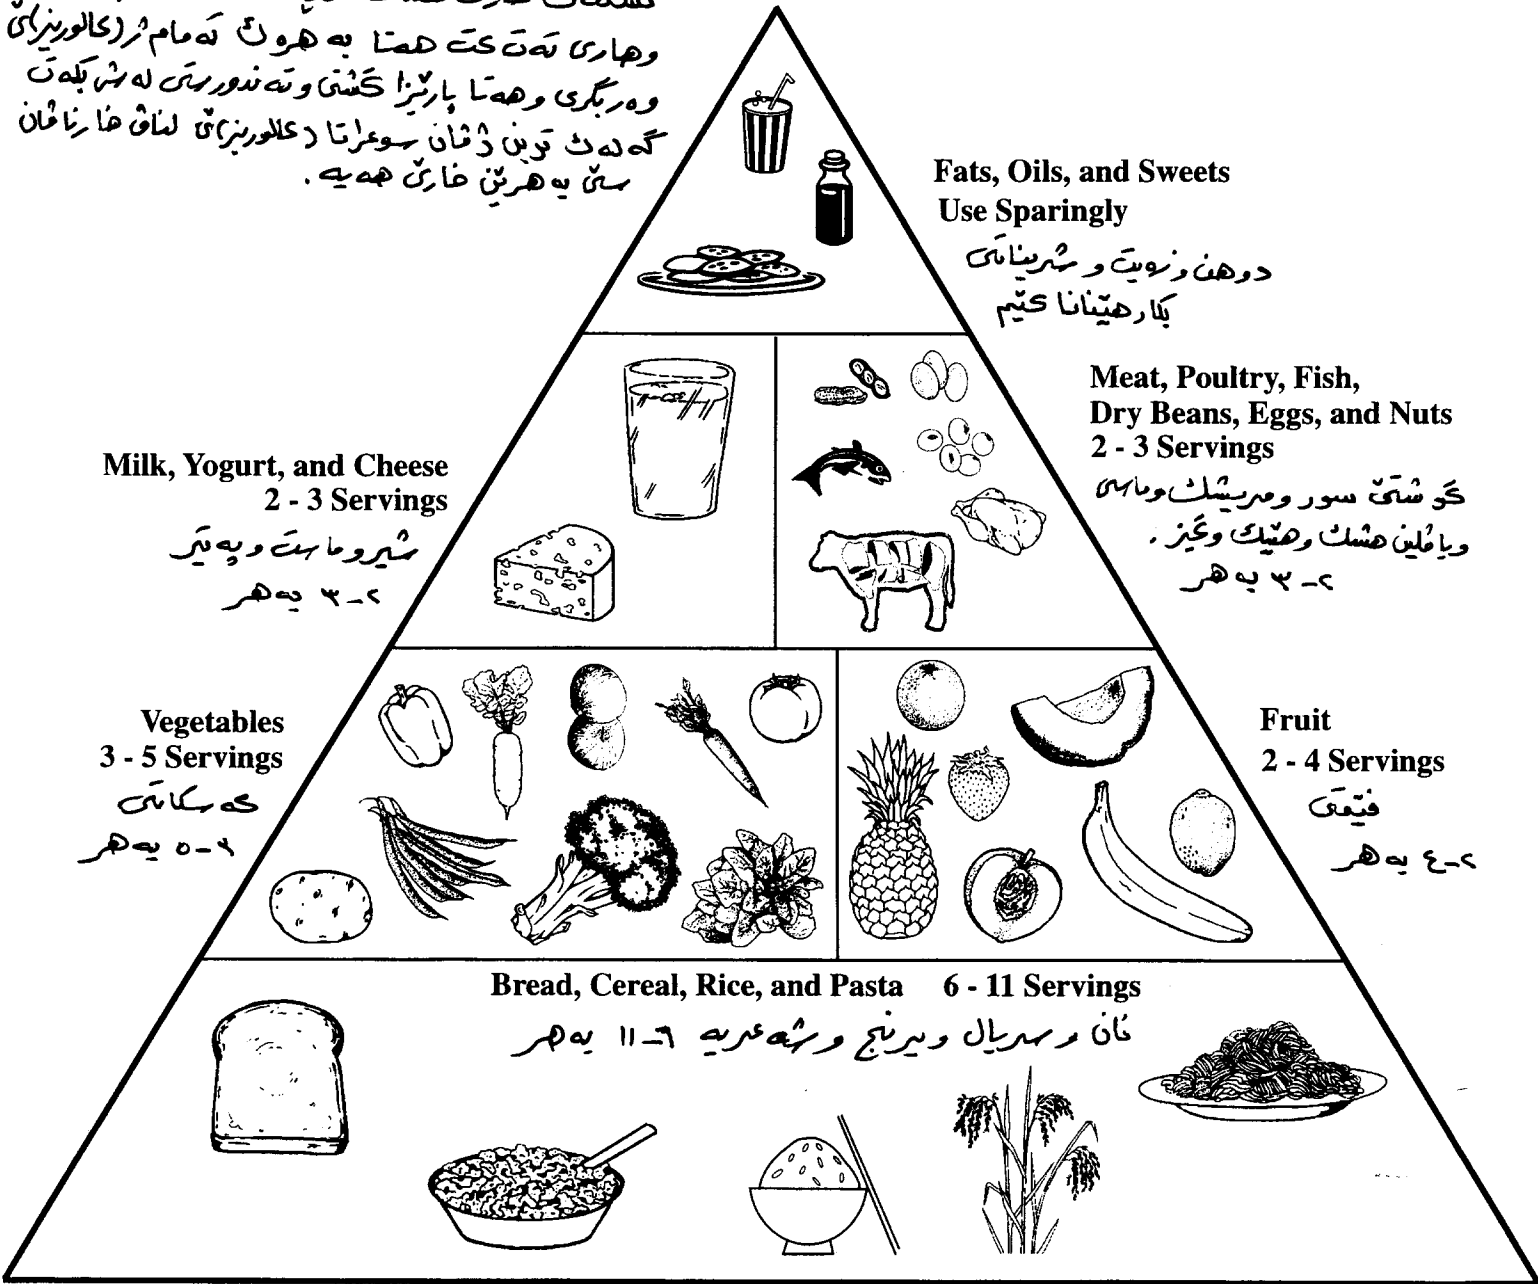 وهاری ئەت کەت هەتا بە هروك تەمام ژ (کالوریزا)ێ
وەربگری و هەتا پارێزا گشتی و تەندورستی لەش بکەت
گەلەك ژ ڤان د (کالوریزا)ێ لناڤ خارناڤان
سێ بەهرێن خارێ هەیە.
Fats, Oils, and Sweets
Use Sparingly
دوهن و زەیت و شریناتی
بکارهێنانا کێم
Meat, Poultry, Fish,
Dry Beans, Eggs, and Nuts
2 - 3 Servings
گوشتێ سور و مریشك و ماسی
و باقلێن هشك و هێیك و گیز.
٢-٣ بەهر
Milk, Yogurt, and Cheese
2 - 3 Servings
شیر و ماست و پەنێر
٢-٣ بەهر
Vegetables
3 - 5 Servings
کەسکاتی
٣-٥ بەهر
Fruit
2 - 4 Servings
فێقی
٢-٤ بەهر
Bread, Cereal, Rice, and Pasta 6 - 11 Servings
نان و سریال و برنج و شەعریە ٦-١١ بەهر